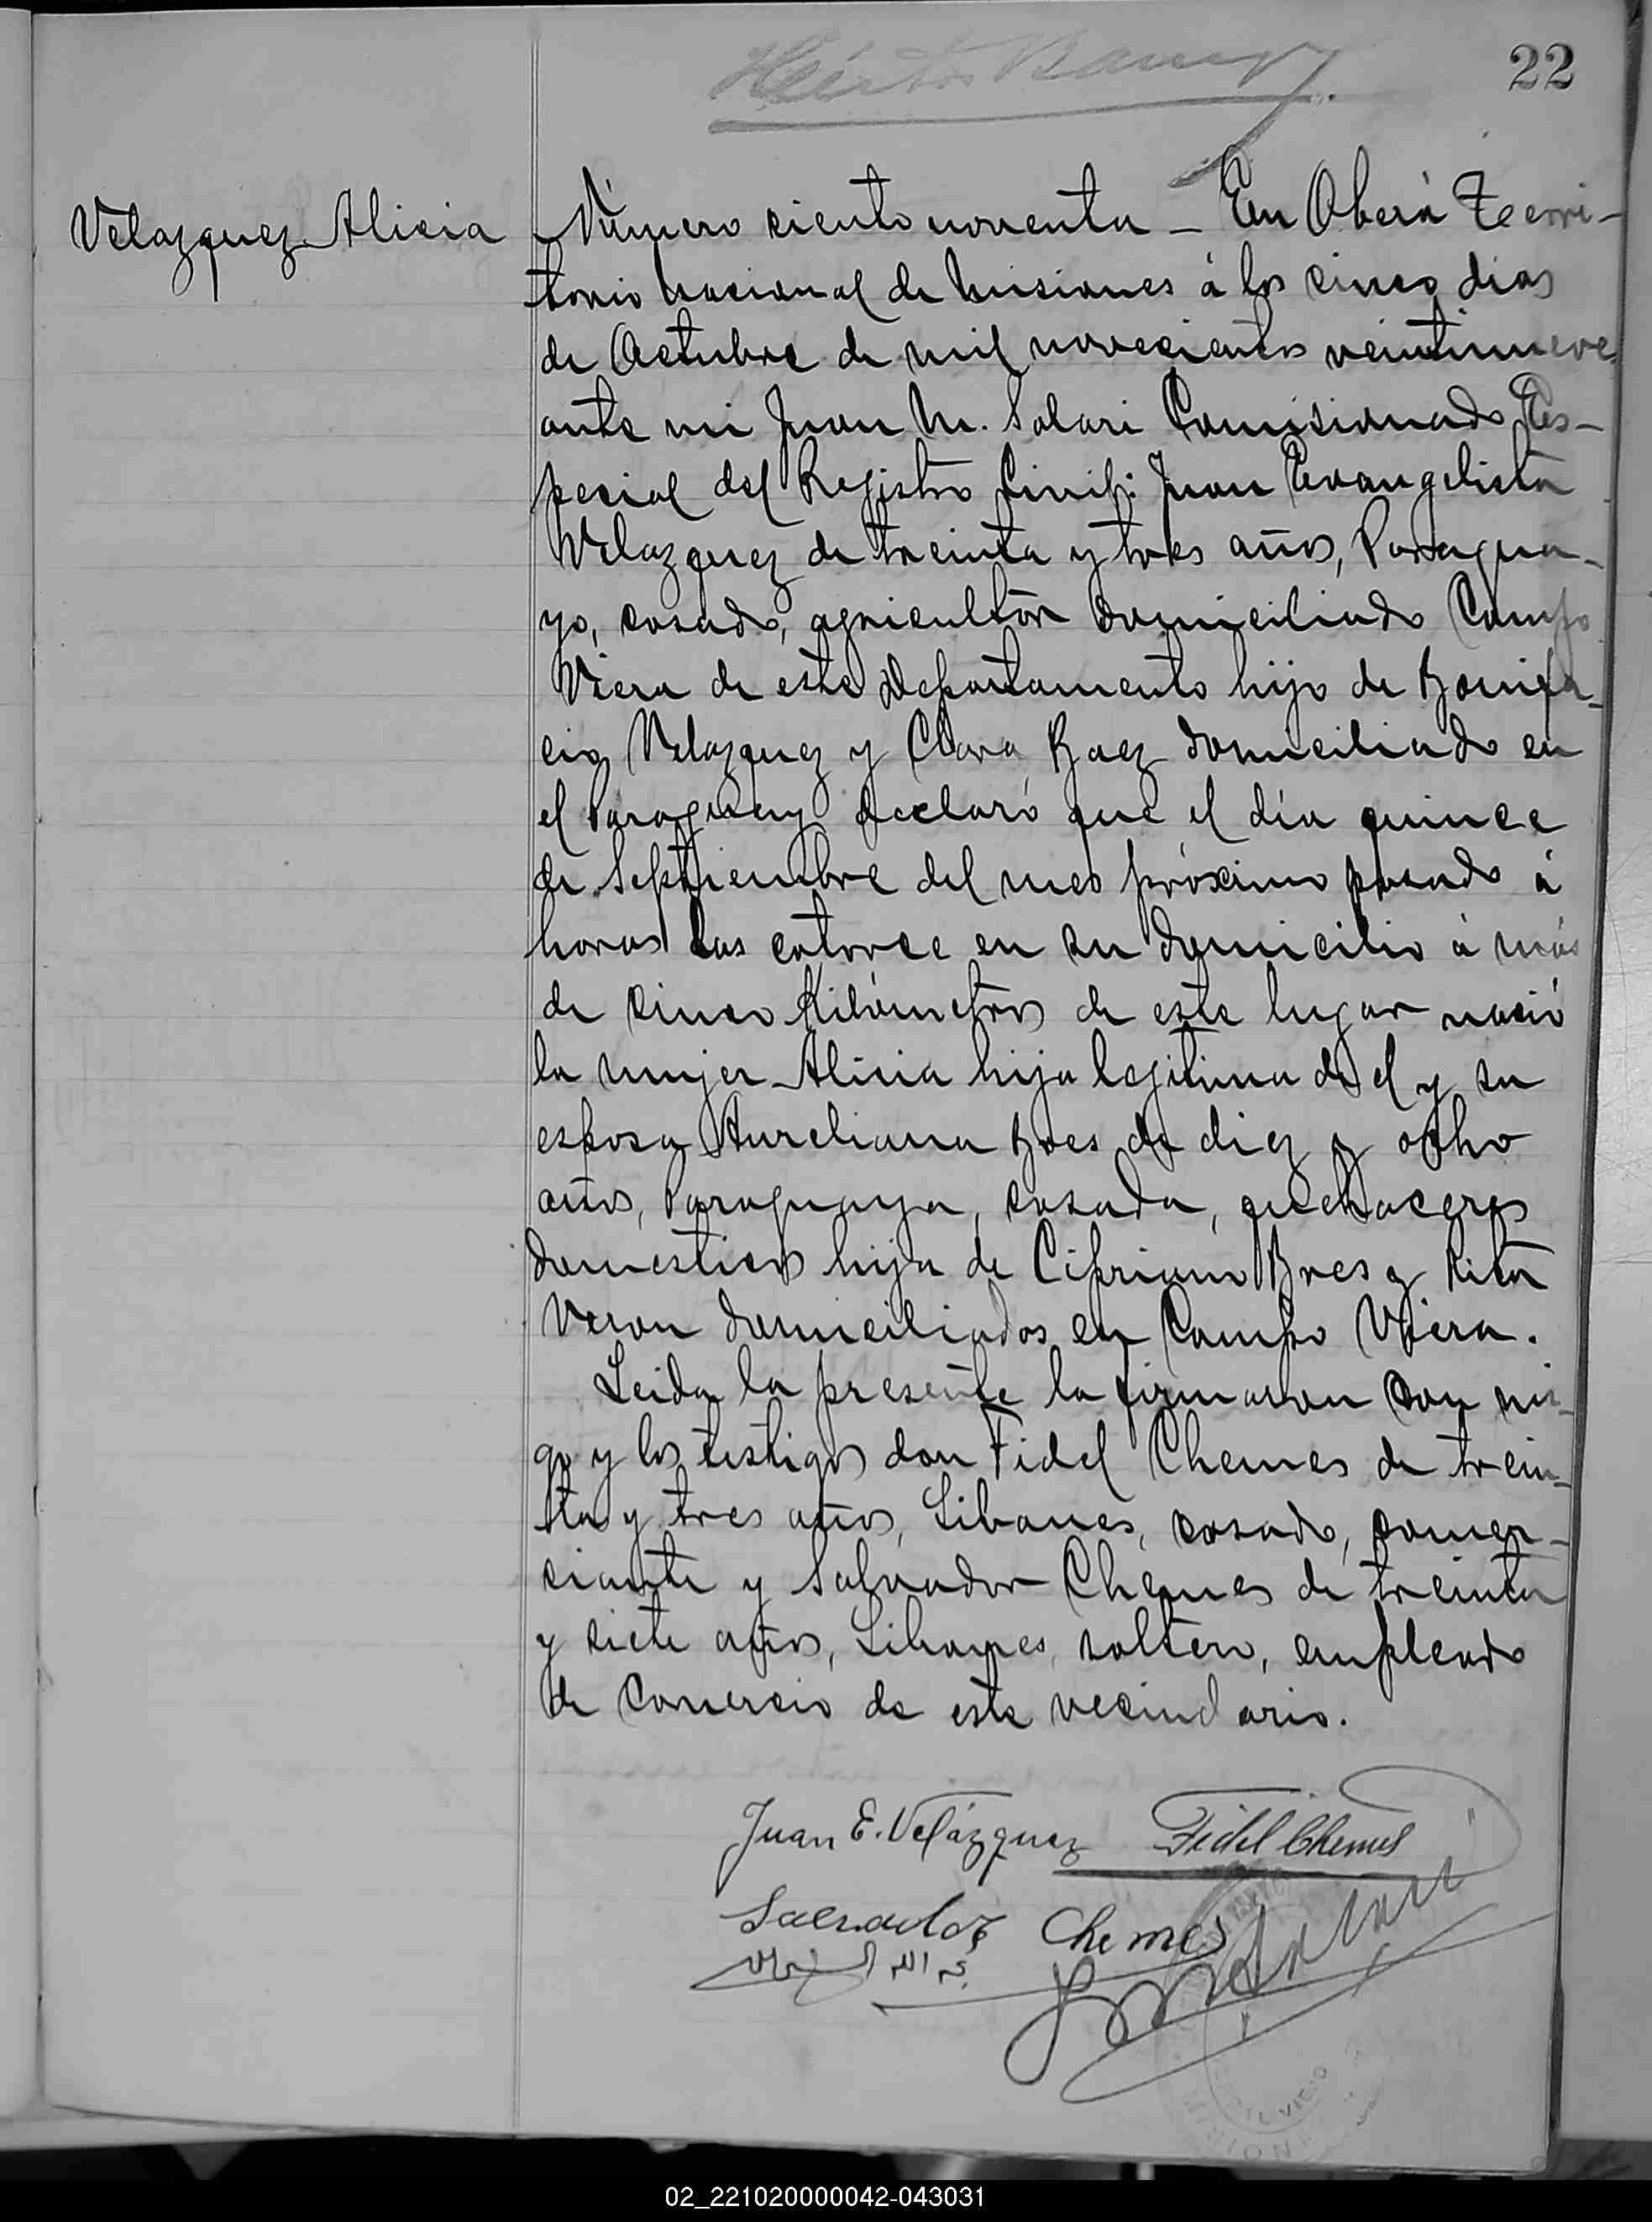 22
Velazquez Alicia
Número ciento noventa – En Oberá Terri-
torio nacional de Misiones á los cinco dias
de Octubre de mil novecientos veintinueve
ante mi Juan M. Solari Comisionado Es-
pecial del Registro Civil: Juan Evangelista
Velazquez de treinta y tres años, Paragua-
yo, casado, agricultor domiciliado Campo
Viera de este Departamento hijo de Bonifa-
cio Velazquez y Clara Baez domiciliado en
el Paraguay declaró que el día quince
de Septiembre del mes próximo pasado á
horas las catorce en su domicilio á más
de cinco Kilómetros de este lugar nació
la mujer Alicia hija legitima de el y su
esposa Aureliana de diez y ocho
años, Paraguaya, casada, quehaceres
domesticos hija de Cipriano y Rita
Veron domiciliados en Campo Viera.
Leida la presente la firmaron con mi-
go y los testigos don Fidel Chemes de trein-
ta y tres años, Libanes, casado, comer-
ciante y Salvador Chemes de treinta
y siete años, Libanes, soltero, empleado
de Comercio de este vecindario.
Juan E. Velázquez Fidel Chemes
Chemes
Solari
02_221020000042-043031